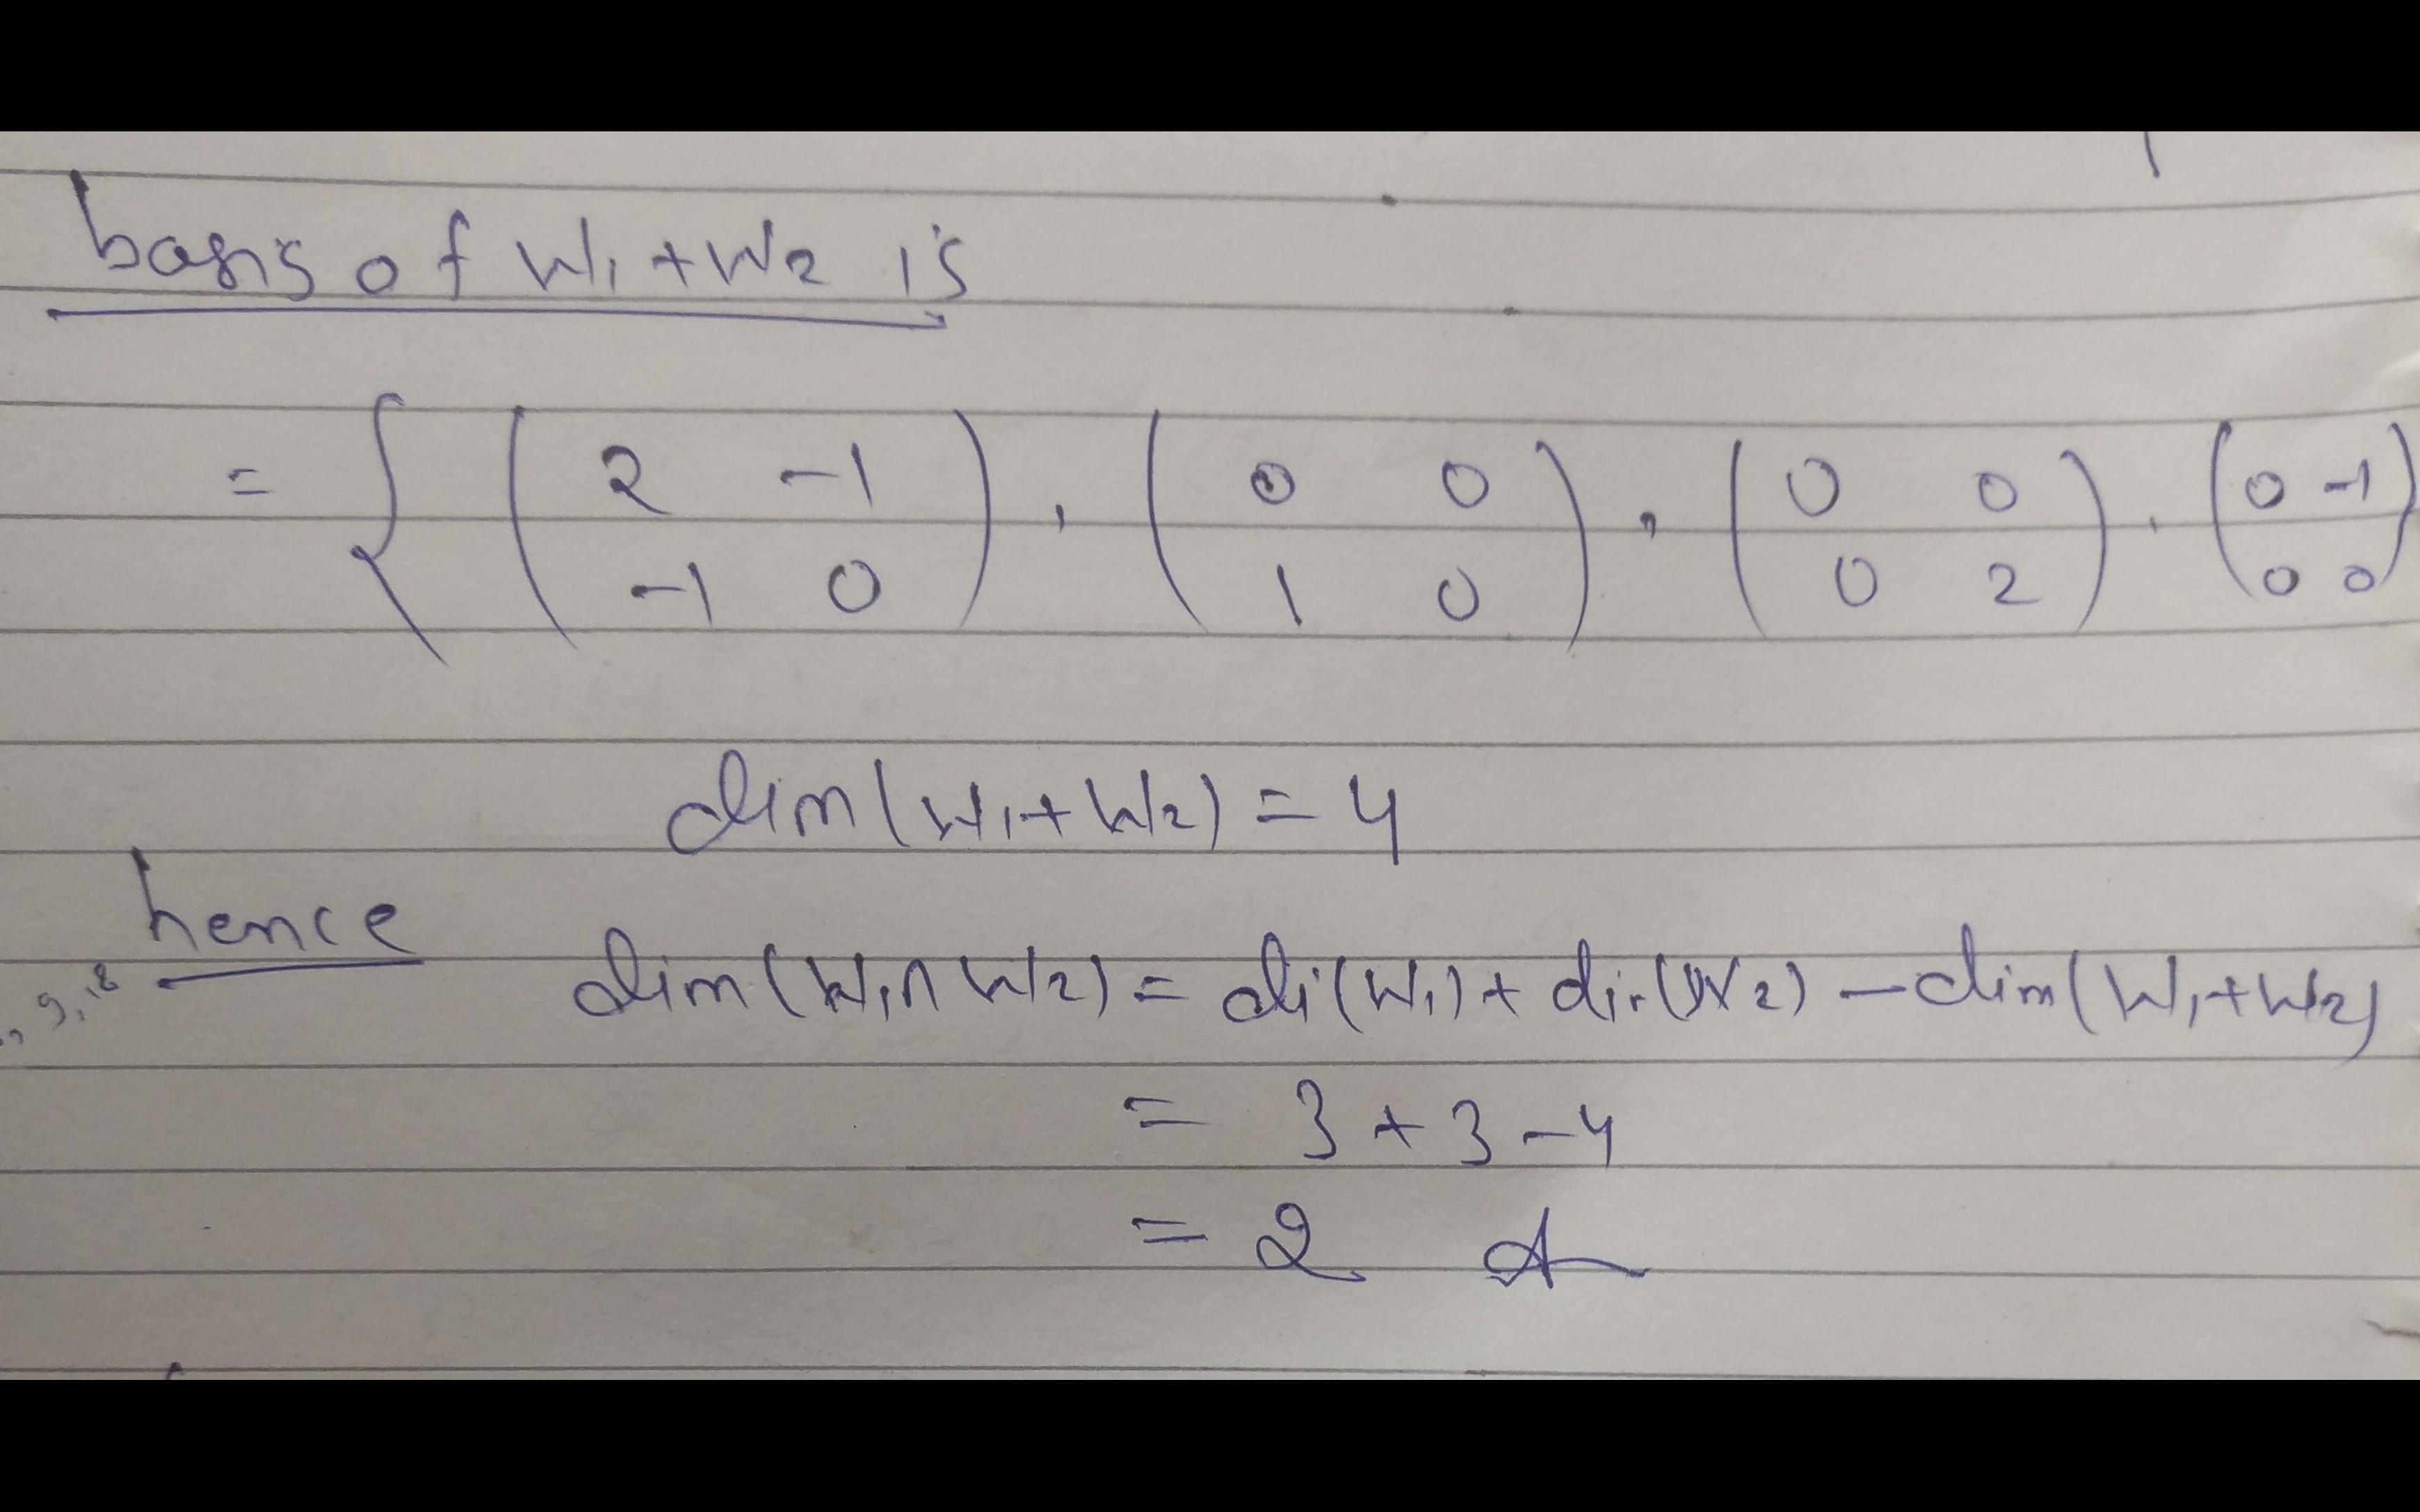 basis of W1+W2 is
= { ( 2 -1
-1 0 ) , ( 0 0
1 0 ) , ( 0 0
0 2 ) , ( 0 -1
0 0 )
dim(W1+W2) = 4
hence
dim(W1∩W2) = di(W1) + dir(W2) - dim(W1+W2)
= 3 + 3 - 4
= 2